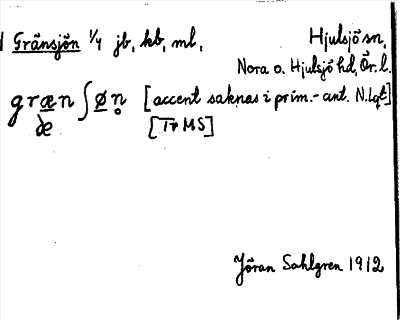 Gränsjön 1/4 jb, kb, ml, Hjulsjö sn,
Nora o. Hjulsjö hd, Ör. l.
grænʃøn̥ [accent saknas i prim.-ant. N.Lqt]
æ [Tr MS]
Jöran Sahlgren 1912